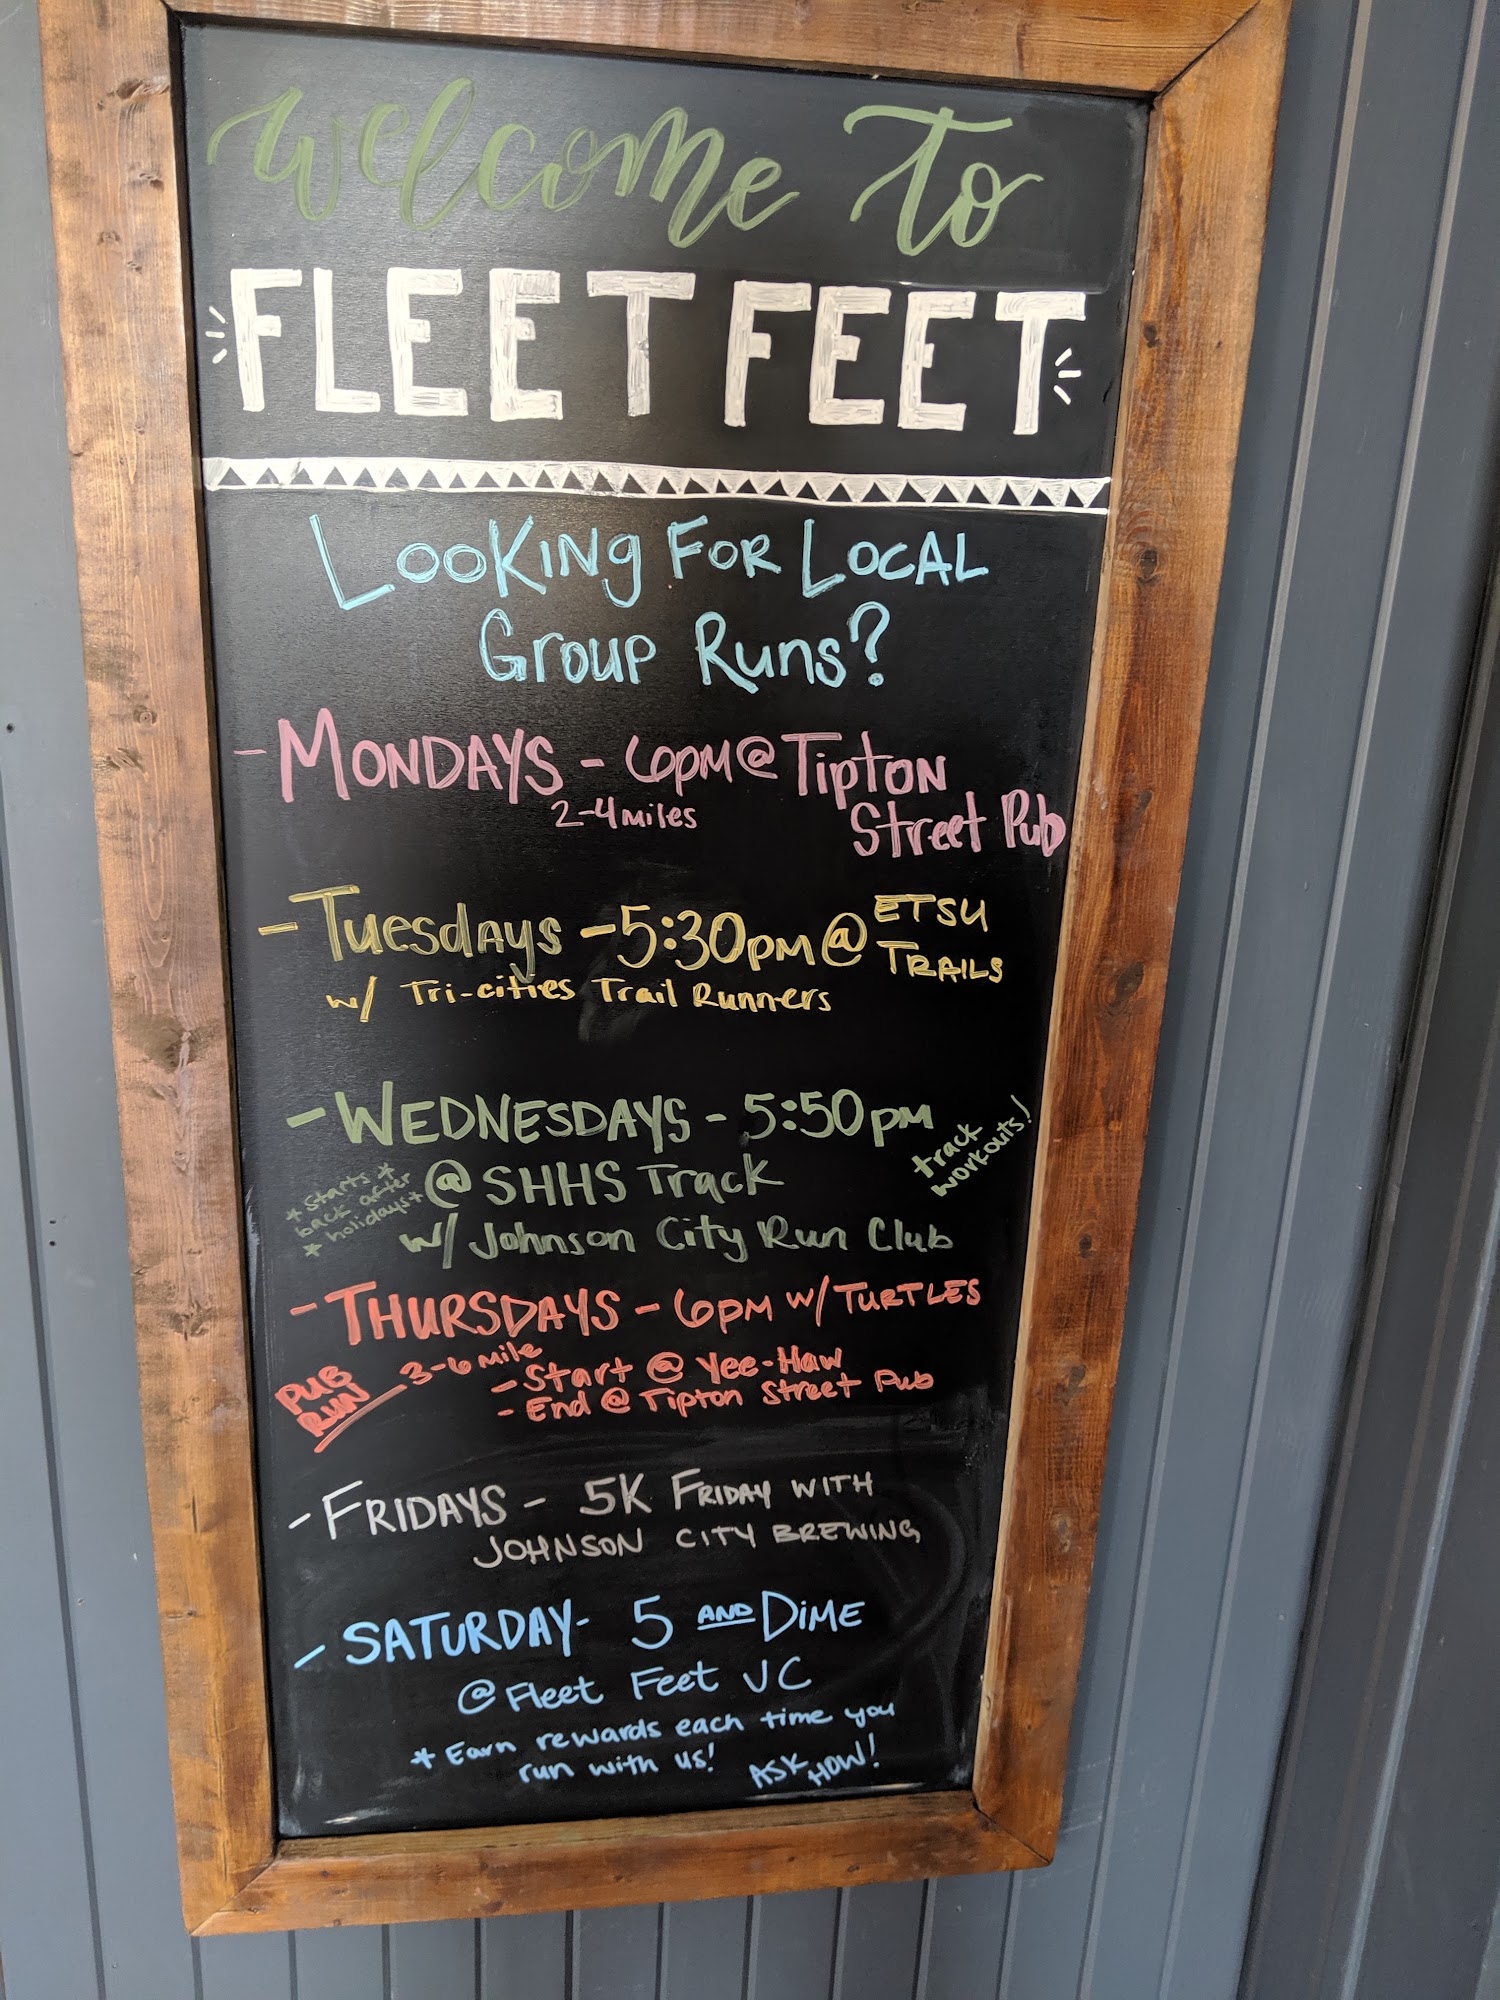 welcome to
FLEET FEET
LOOKING FOR LOCAL
GROUP RUNS?
- MONDAYS - 6PM @ Tipton
2-4 miles
Street Pub
- Tuesdays - 5:30PM @ ETSU
TRAILS
w/ Tri-cities Trail Runners
- WEDNESDAYS - 5:50PM
track
workouts!
@ SHHS Track
* Starts *
back after
* holidays *
w/ Johnson City Run Club
- THURSDAYS - 6PM W/ TURTLES
PUB
RUN
3-6 mile
- Start @ Yee-Haw
- End @ Tipton Street Pub
- FRIDAYS - 5K FRIDAY WITH
JOHNSON CITY BREWING
- SATURDAY - 5 AND DiME
@ Fleet Feet JC
* Earn rewards each time you
run with us!
ASK HOW!